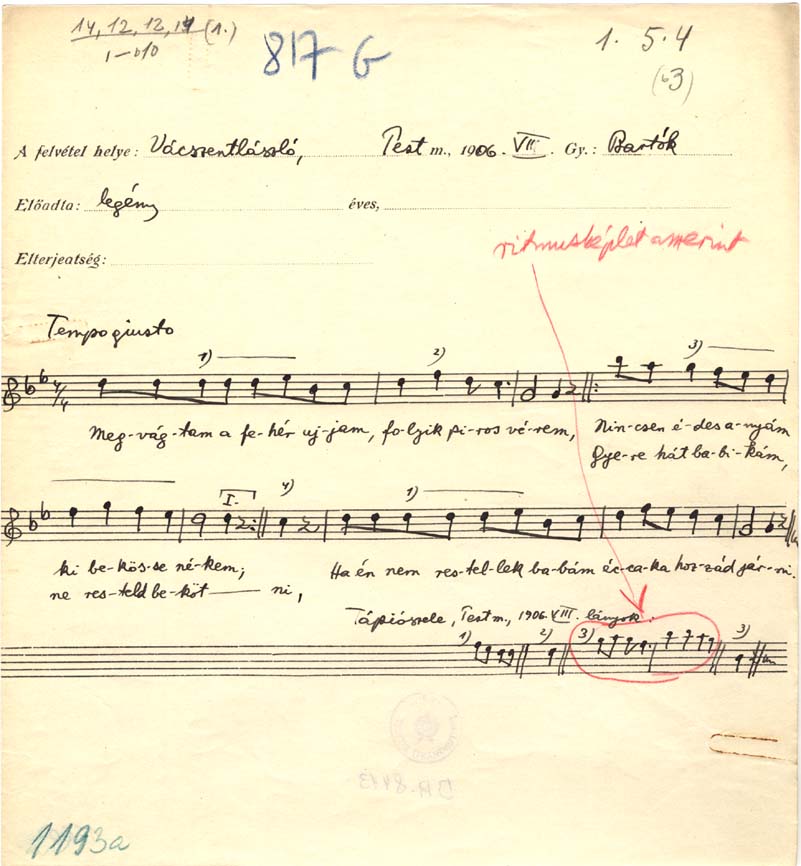 14, 12, 12, 14 (1.)
817 G
1. 5. 4
(63)
A felvétel helye: Vácszentlászló, Pest m., 1906. VII. Gy.: Bartók
Előadta: legény éves,
Elterjeatség:
ritmusképlet a merint
Tempo giusto
1) 2) 3)
Meg-vág-tam a fe-hér uj-jam, fo-lyik pi-ros vé-rem, Nin-csen é-des a-nyám
Gye-re hát ba-bi-kám,
I. 4) 1)
ki be-kös-se né-kem; Ha én nem res-tel-lek ba-bám éc-ca-ka hoz-zád jár-ni.
ne res-teld be-köt — ni,
Tápiószele, Pest m., 1906. VIII. lányok.
1) 2) 3) 3)
1193a